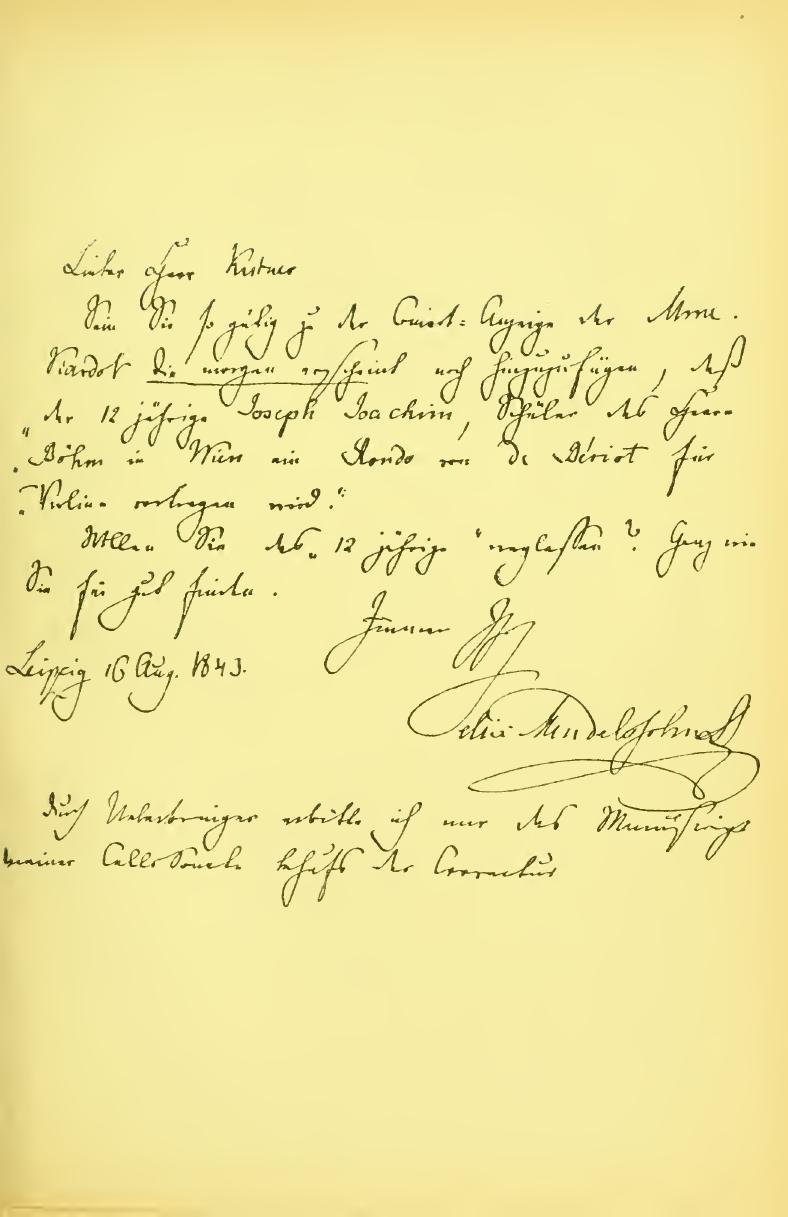 Lieber Herr Kistner
Sein Sie so gütig zu der Concert=Anzeige der Mme.
Viardot die morgen erscheint noch hinzuzufügen, daß
„der 12 jährige Joseph Joachim, Schüler des Herrn
„Böhm in Wien ein Rondo von de Bériot für
„Violine vortragen wird."
Wollen Sie das „12 jährige" weglassen? Ganz wie
Sie für gut finden.
Immer Ihr
Leipzig 16 Aug. 1843.
Felix Mendelssohn
durch Ueberbringer erbitte ich mir das Manuscript
meiner Cello Sonate behufs der Correctur